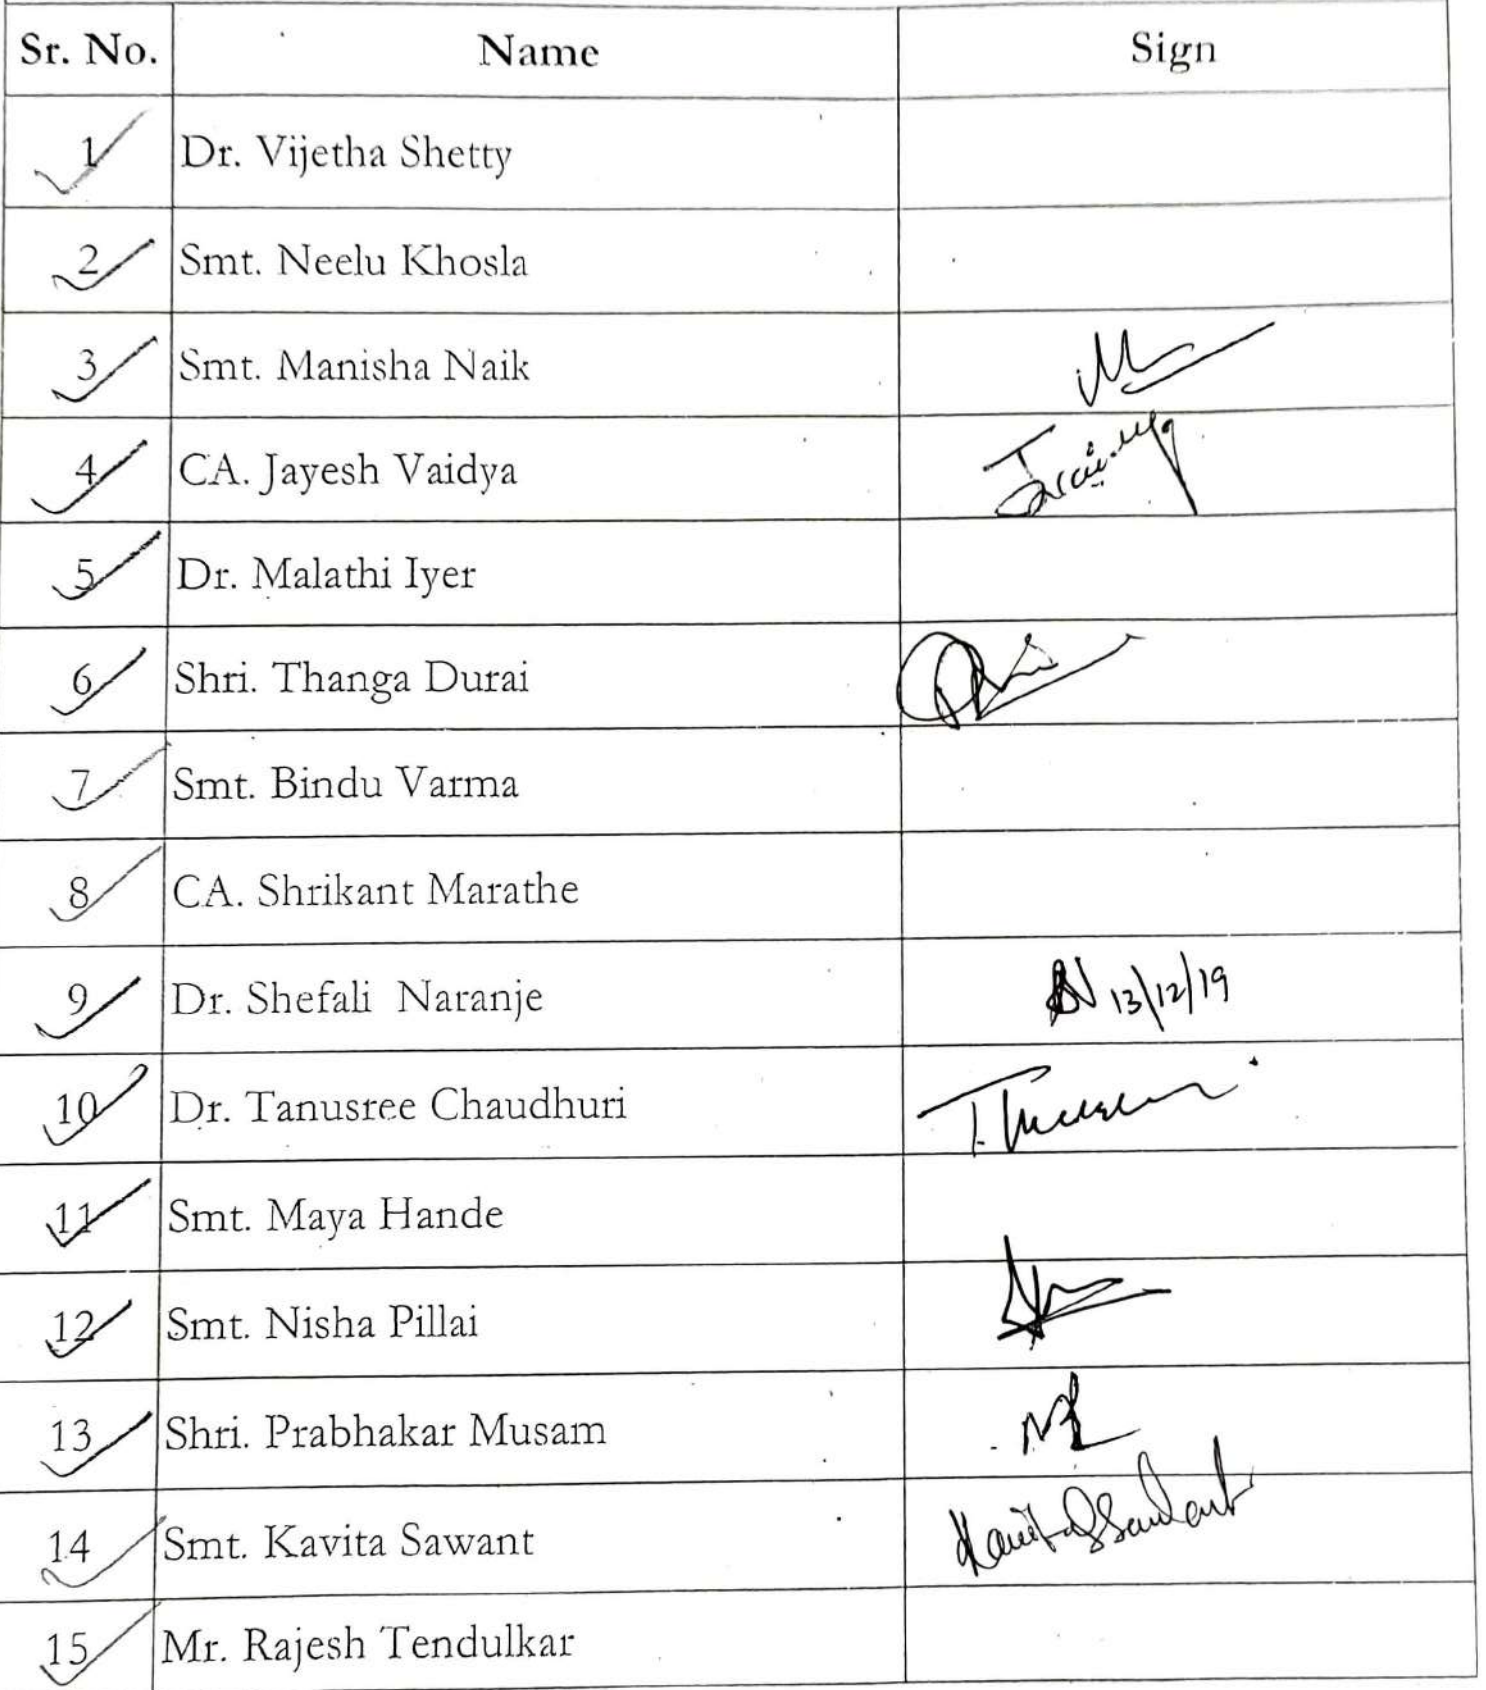 Sr. No. Name Sign
1 Dr. Vijetha Shetty
2 Smt. Neelu Khosla
3 Smt. Manisha Naik
4 CA. Jayesh Vaidya
5 Dr. Malathi Iyer
6 Shri. Thanga Durai
7 Smt. Bindu Varma
8 CA. Shrikant Marathe
9 Dr. Shefali Naranje SN 13/12/19
10 Dr. Tanusree Chaudhuri
11 Smt. Maya Hande
12 Smt. Nisha Pillai
13 Shri. Prabhakar Musam
14 Smt. Kavita Sawant
15 Mr. Rajesh Tendulkar